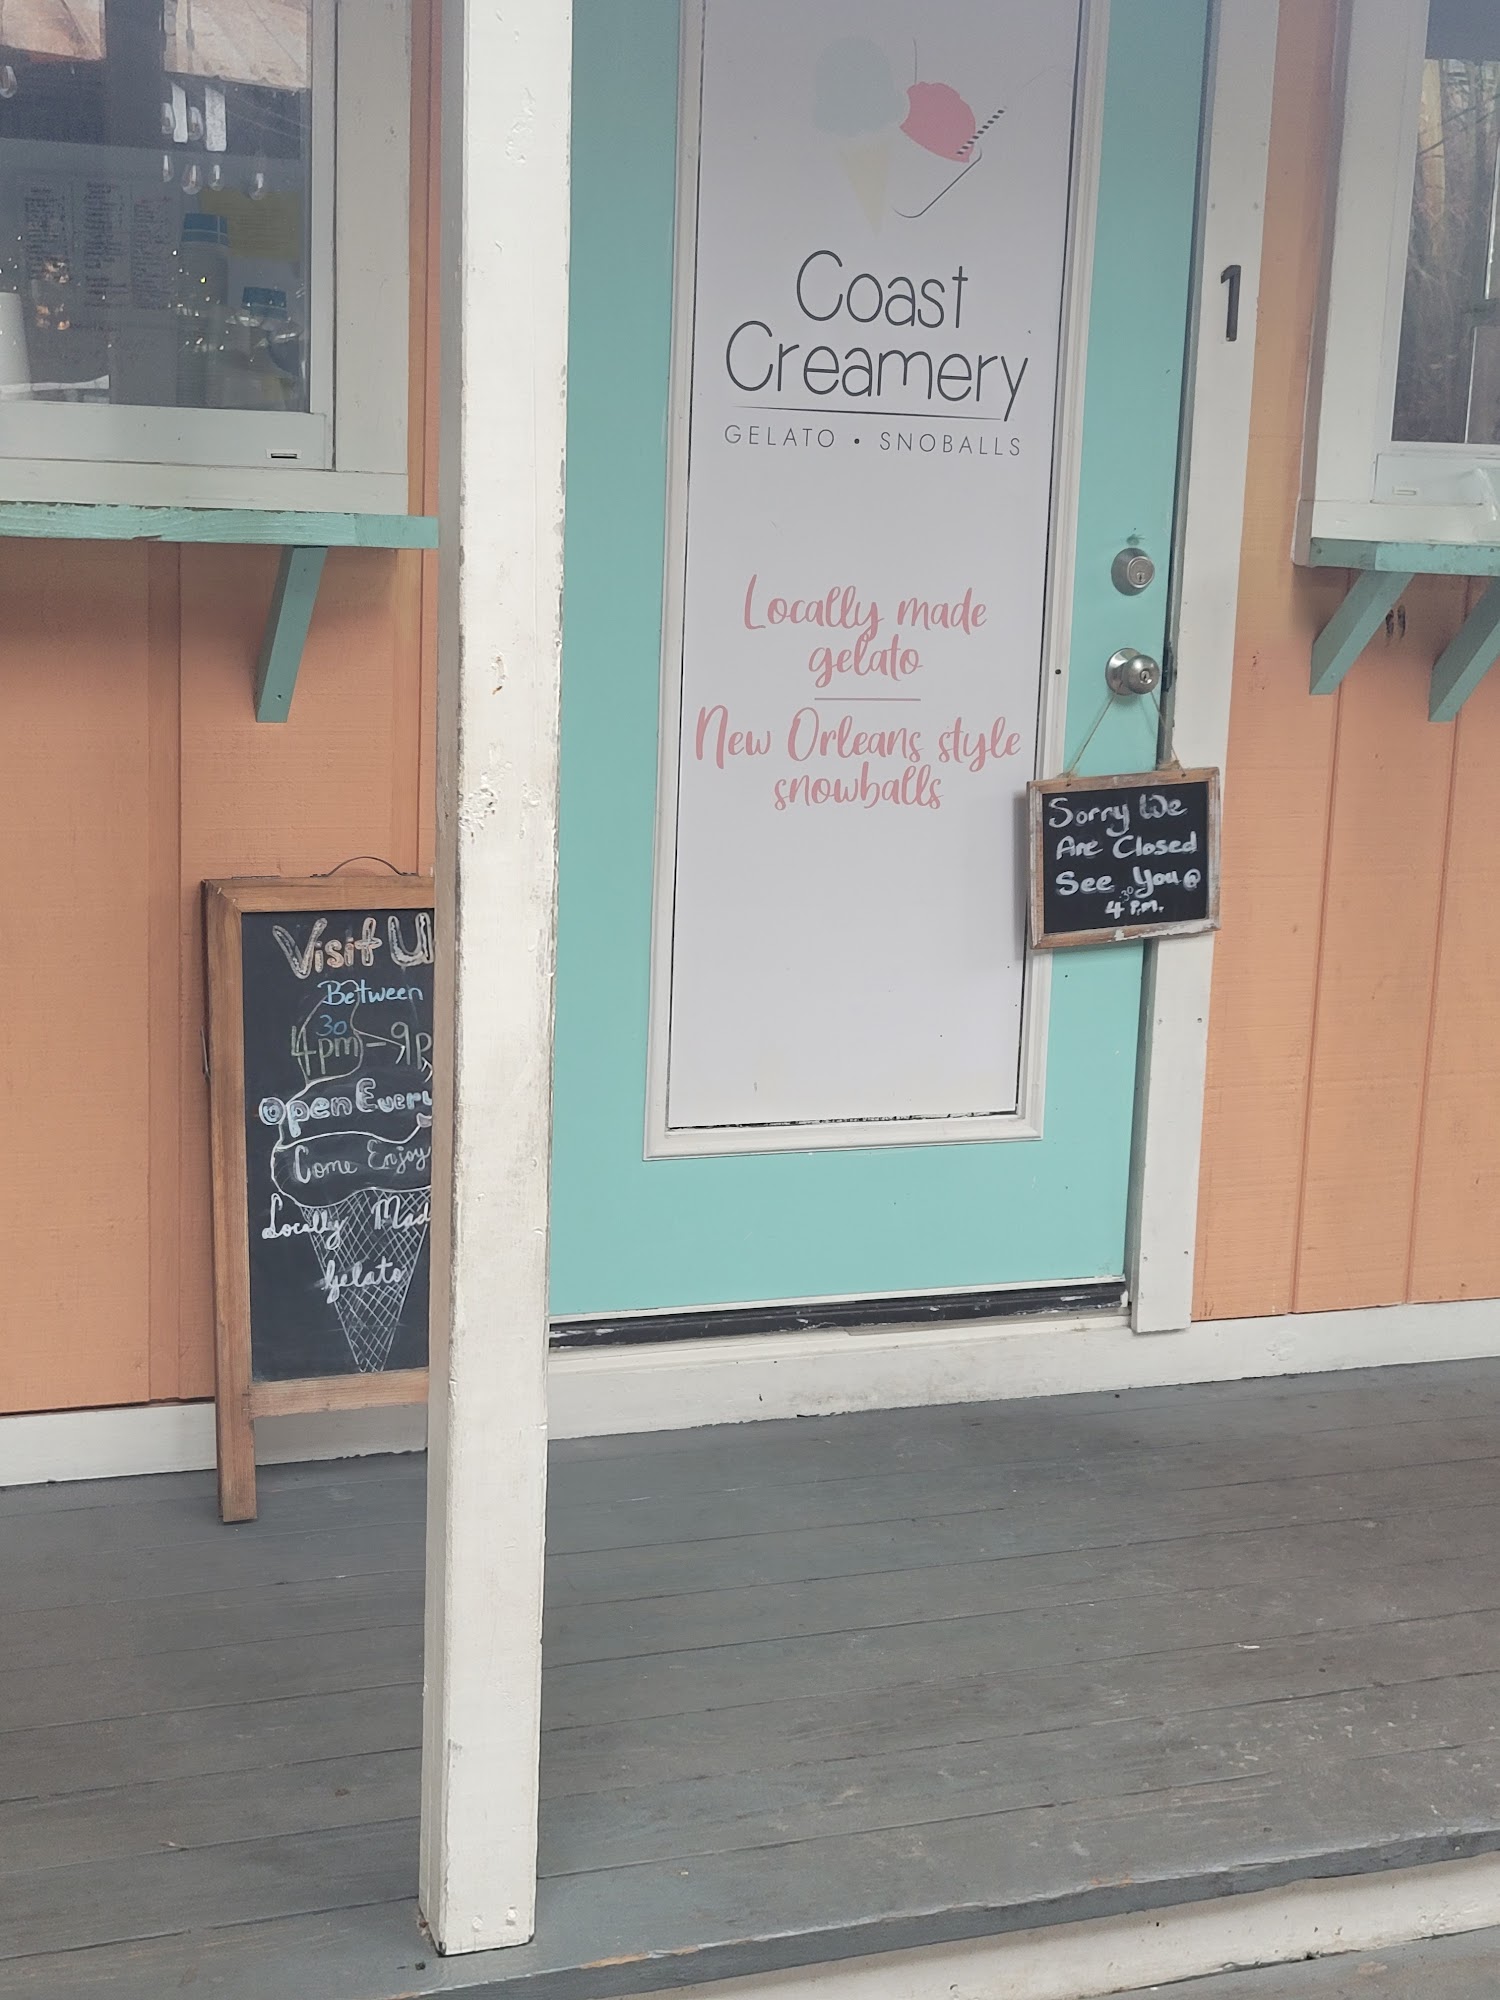 Coast
Creamery
GELATO • SNOBALLS
Locally made
gelato
New Orleans style
snowballs
1
Sorry We
Are Closed
See You @
4:30 P.M.
Visit U
Between
4 30 pm - 9p
Open Every
Come Enjoy
Locally Mad
Gelato